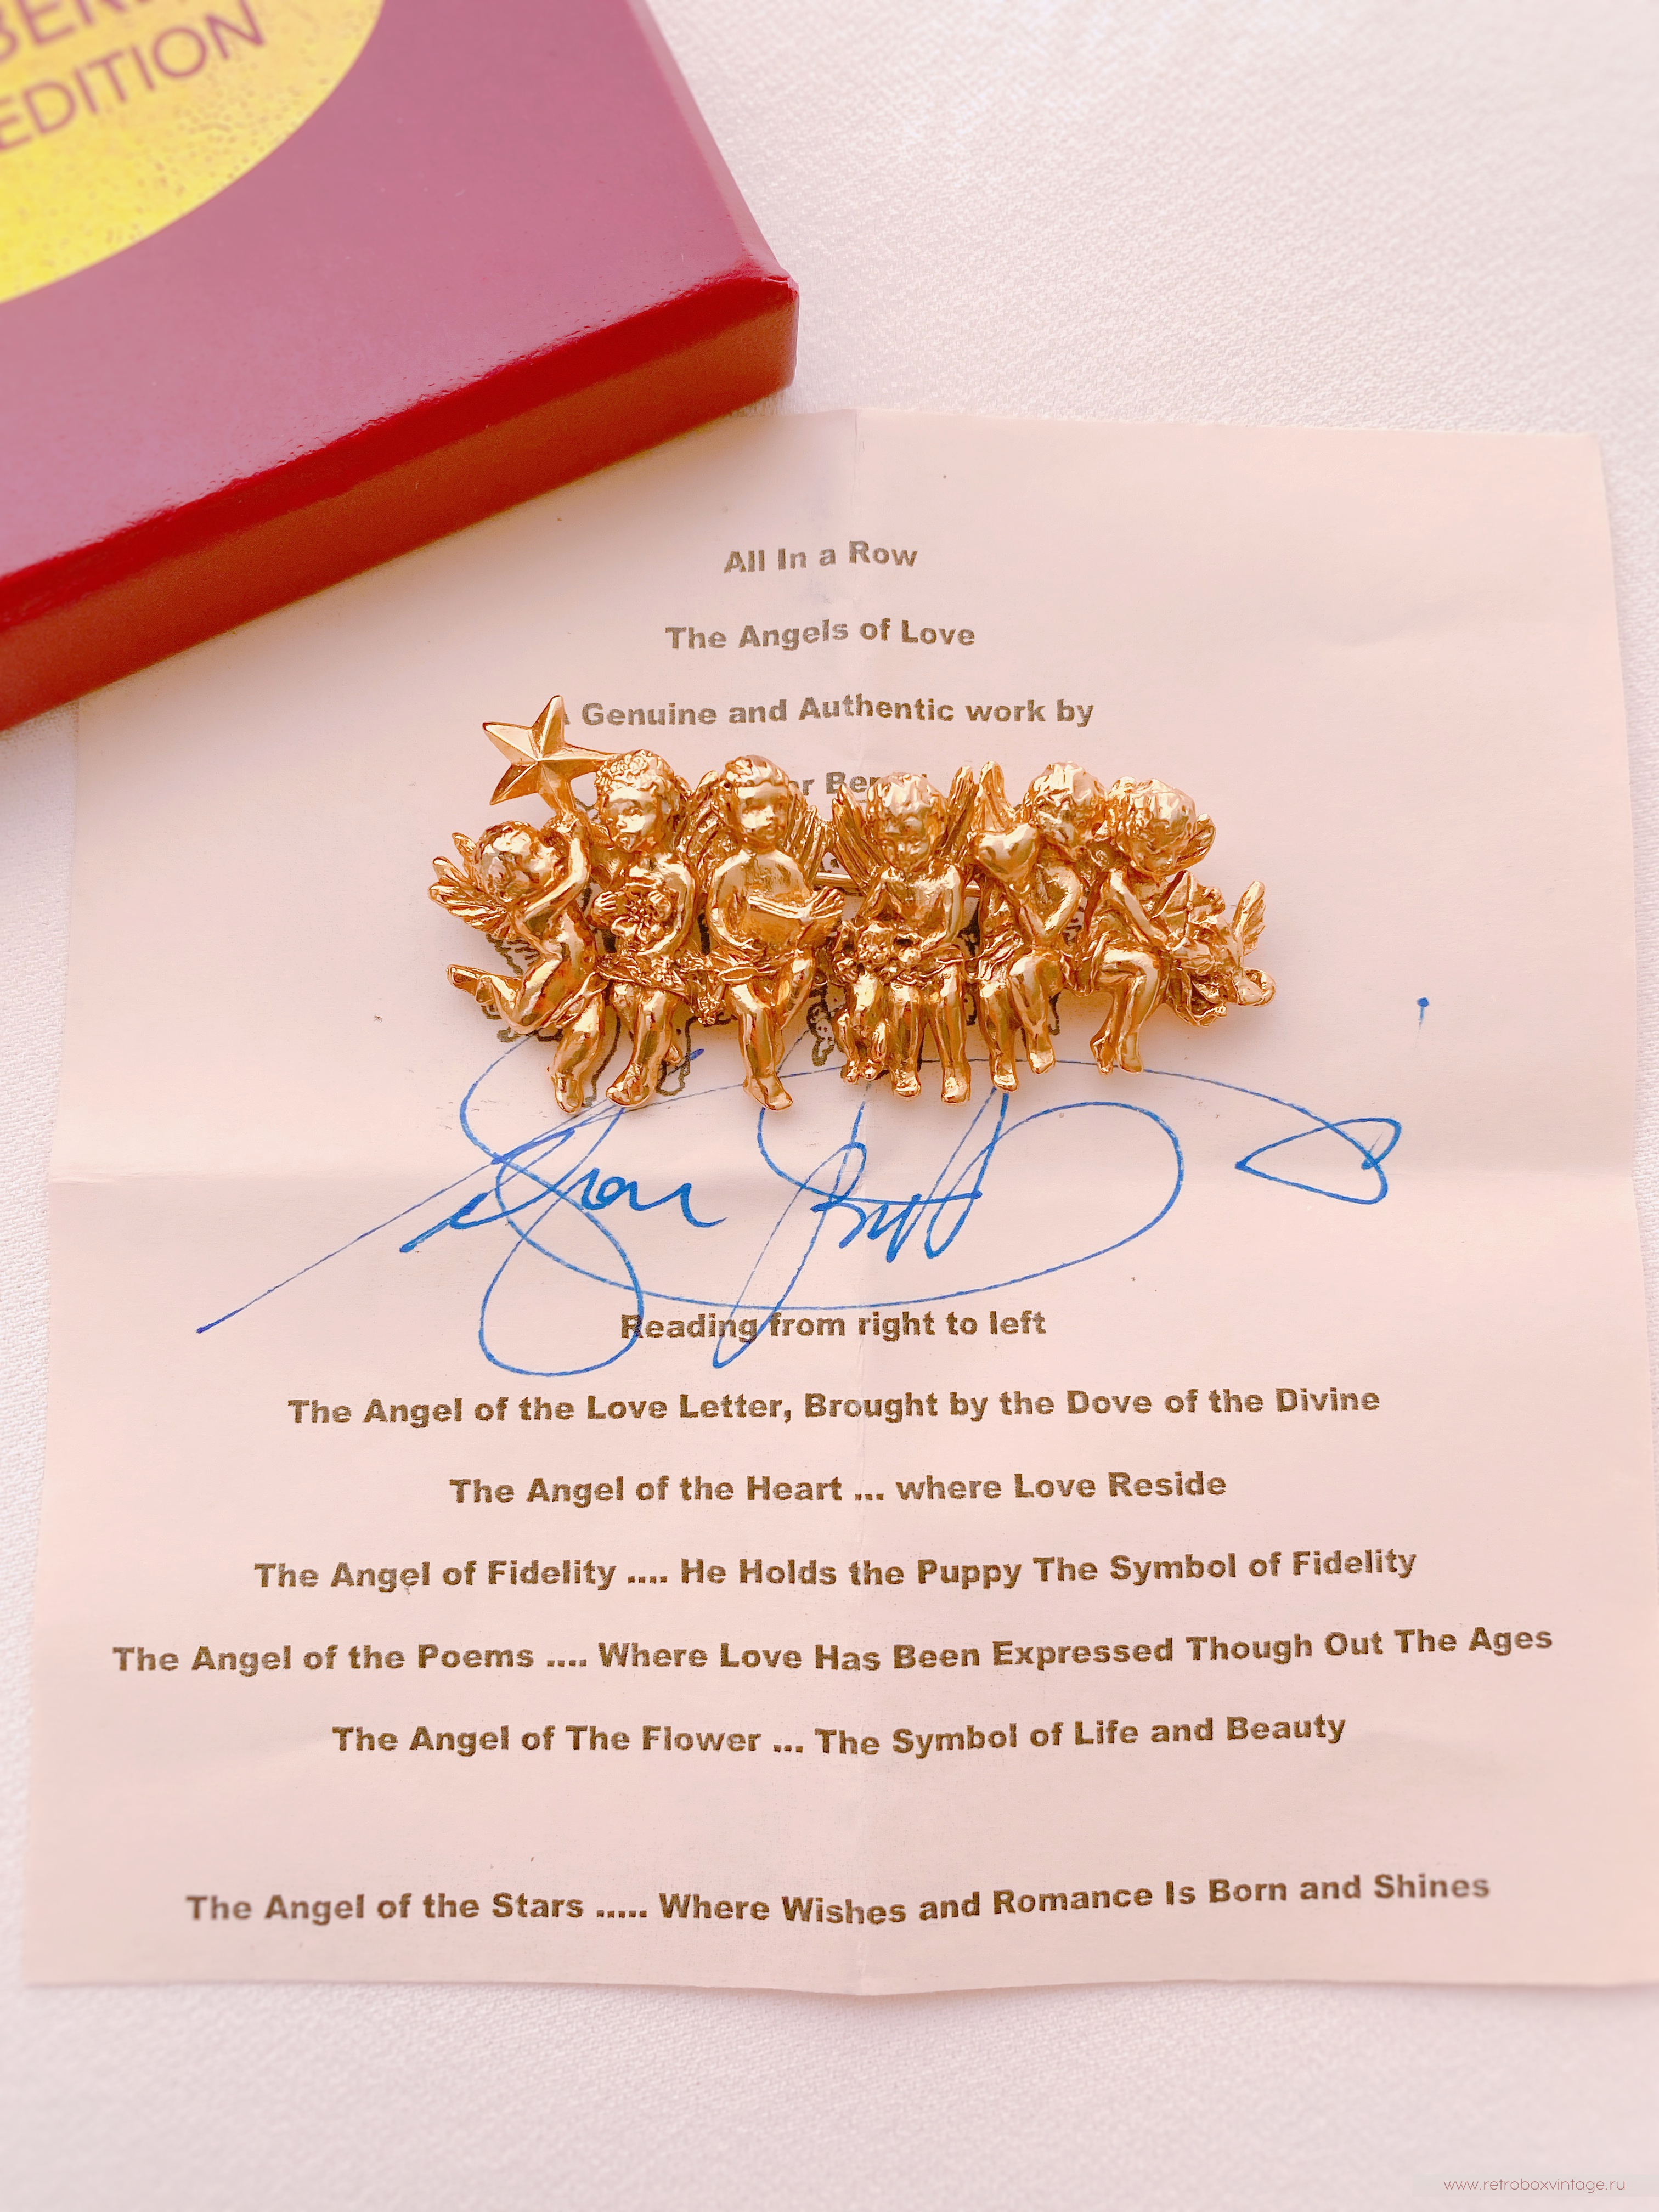 EDITION
All In a Row
The Angels of Love
Genuine and Authentic work by
Reading from right to left
The Angel of the Love Letter, Brought by the Dove of the Divine
The Angel of the Heart ... where Love Reside
The Angel of Fidelity .... He Holds the Puppy The Symbol of Fidelity
The Angel of the Poems .... Where Love Has Been Expressed Though Out The Ages
The Angel of The Flower ... The Symbol of Life and Beauty
The Angel of the Stars ..... Where Wishes and Romance Is Born and Shines
www.retroboxvintage.ru